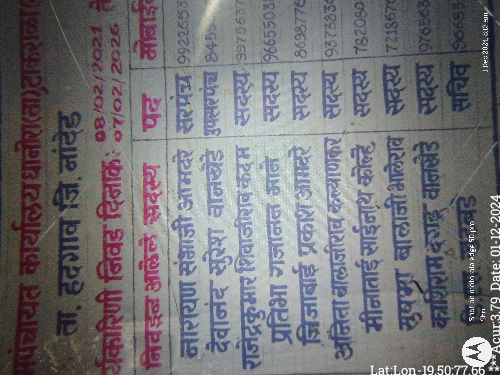 ग्रामपंचायत कार्यालय धानोरा(ता)टाकराळा(
ता. हदगाव जि. नांदेड
कार्यकारिणी निवड दिनांक: 08/02/2021 ते
07/02/2026
निवडून आलेले सदस्य पद मोबाईल
नारायण संभाजी आमदरे सरपंच 9922653
देवानंद सुरेश वानखेडे उपसरपंच 8455
राजेंद्रकुमार शिवाजीराव कदम सदस्य
प्रतिभा गजानन माने सदस्य 9665503
जिजाबाई प्रकाश आमदरे सदस्य 869877
अनिता बालाजीराव कल्याणकर सदस्य 937383
मीनाताई साईनाथ कोल्हे सदस्य 782080
सुषमा बालाजी भालेराव सदस्य 721867
काशिराम वानखेडे सदस्य
सचिव
1 Dec 2024, 6:12 am
Shot on moto edge 50 pro
Lat:Lon-19.50:77.66
Acur:3.79 Date:01-12-2024